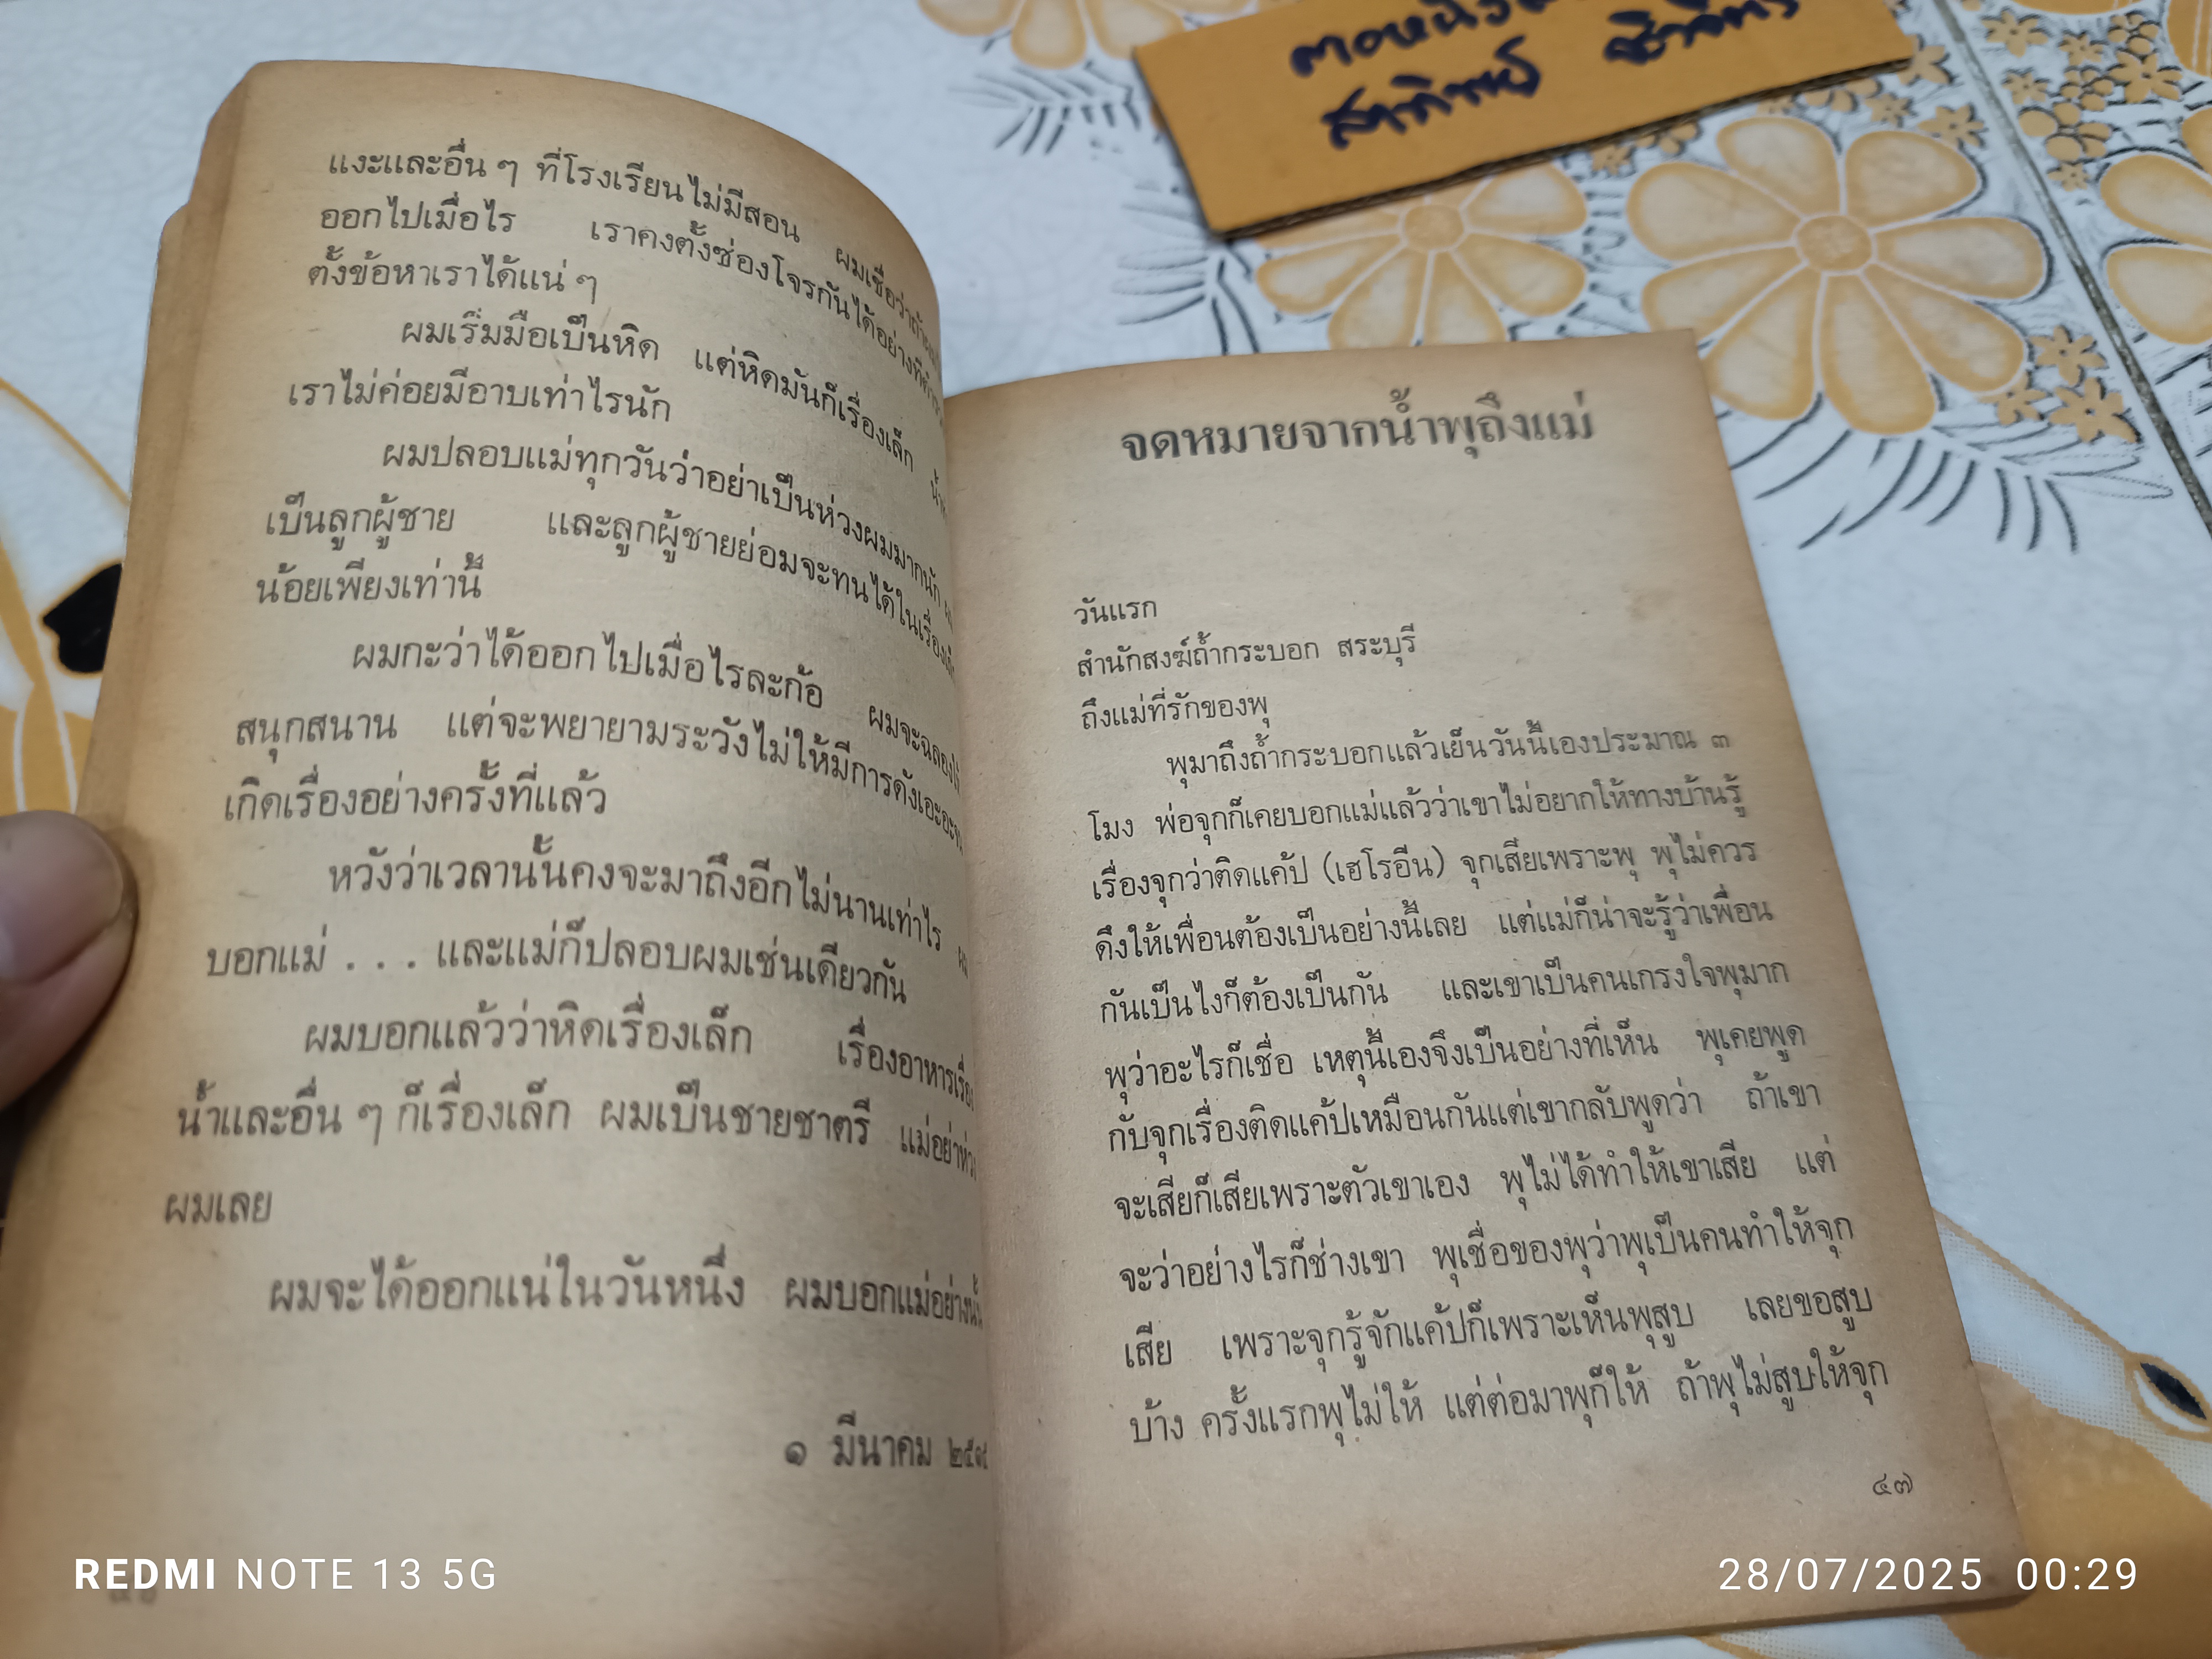 แงะและอื่น ๆ ที่โรงเรียนไม่มีสอน ผมเชื่อว่าถ้า
ออกไปเมื่อไร เราคงตั้งซ่องโจรกันได้อย่างที่
ตั้งข้อหาเราได้แน่ ๆ
ผมเริ่มมือเป็นหิด แต่หิดมันก็เรื่องเล็ก
เราไม่ค่อยมีอาบเท่าไรนัก
ผมปลอบแม่ทุกวันว่าอย่าเป็นห่วงผมมากนัก
เป็นลูกผู้ชาย และลูกผู้ชายย่อมจะทนได้ในเรื่อง
น้อยเพียงเท่านี้
ผมกะว่าได้ออกไปเมื่อไรละก้อ ผมจะฉลอง
สนุกสนาน แต่จะพยายามระวังไม่ให้มีการดังเอะอะ
เกิดเรื่องอย่างครั้งที่แล้ว
หวังว่าเวลานั้นคงจะมาถึงอีกไม่นานเท่าไร
บอกแม่ . . . และแม่ก็ปลอบผมเช่นเดียวกัน
ผมบอกแล้วว่าหิดเรื่องเล็ก เรื่องอาหารเรื่อง
น้ำและอื่น ๆ ก็เรื่องเล็ก ผมเป็นชายชาตรี แม่อย่าห่วง
ผมเลย
ผมจะได้ออกแน่ในวันหนึ่ง ผมบอกแม่อย่างนั้น
๑ มีนาคม ๒๕๑๙
จดหมายจากน้ำพุถึงแม่
วันแรก
สำนักสงฆ์ถ้ำกระบอก สระบุรี
ถึงแม่ที่รักของพุ
พุมาถึงถ้ำกระบอกแล้วเย็นวันนี้เองประมาณ ๓
โมง พ่อจุกก็เคยบอกแม่แล้วว่าเขาไม่อยากให้ทางบ้านรู้
เรื่องจุกว่าติดแค้ป (เฮโรอีน) จุกเสียเพราะพุ พุไม่ควร
ดึงให้เพื่อนต้องเป็นอย่างนี้เลย แต่แม่ก็น่าจะรู้ว่าเพื่อน
กันเป็นไงก็ต้องเป็นกัน และเขาเป็นคนเกรงใจพุมาก
พุว่าอะไรก็เชื่อ เหตุนี้เองจึงเป็นอย่างที่เห็น พุเคยพูด
กับจุกเรื่องติดแค้ปเหมือนกันแต่เขากลับพูดว่า ถ้าเขา
จะเสียก็เสียเพราะตัวเขาเอง พุไม่ได้ทำให้เขาเสีย แต่
จะว่าอย่างไรก็ช่างเขา พุเชื่อของพุว่าพุเป็นคนทำให้จุก
เสีย เพราะจุกรู้จักแค้ปก็เพราะเห็นพุสูบ เลยขอสูบ
บ้าง ครั้งแรกพุไม่ให้ แต่ต่อมาพุก็ให้ ถ้าพุไม่สูบให้จุก
๔๗
REDMI NOTE 13 5G
28/07/2025 00:29